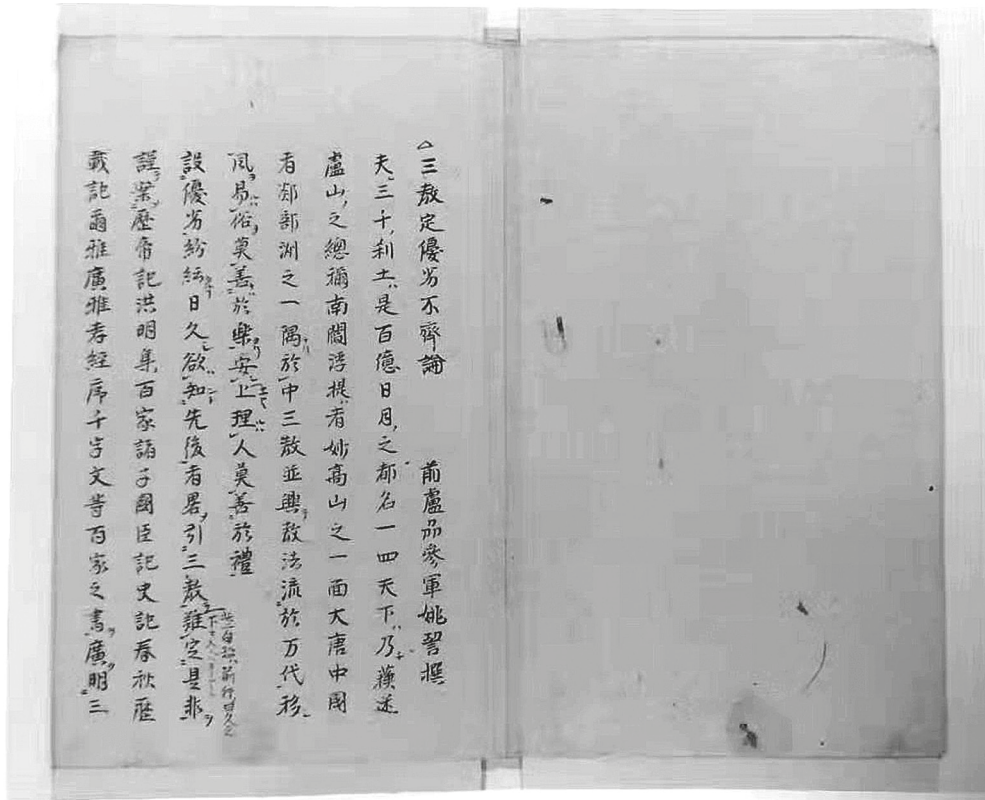 △三教定優劣不齊論
前盧州參軍姚䛒撰
夫三千刹土是百億日月之都名一四天下乃蘇迷
盧山之總稱南閻浮提者妙高山之一面大唐中國
者郯部洲之一隅於中三教並興教法流於万代移
風易俗莫善於樂安上理人莫善於禮
設優劣紛紜日久欲知先後者畧引三教難定是非
謹案歷帝記洪明集百家諸子國臣記史記春秋歴
載記爾雅廣雅孝經序千字文等百家之書廣明三